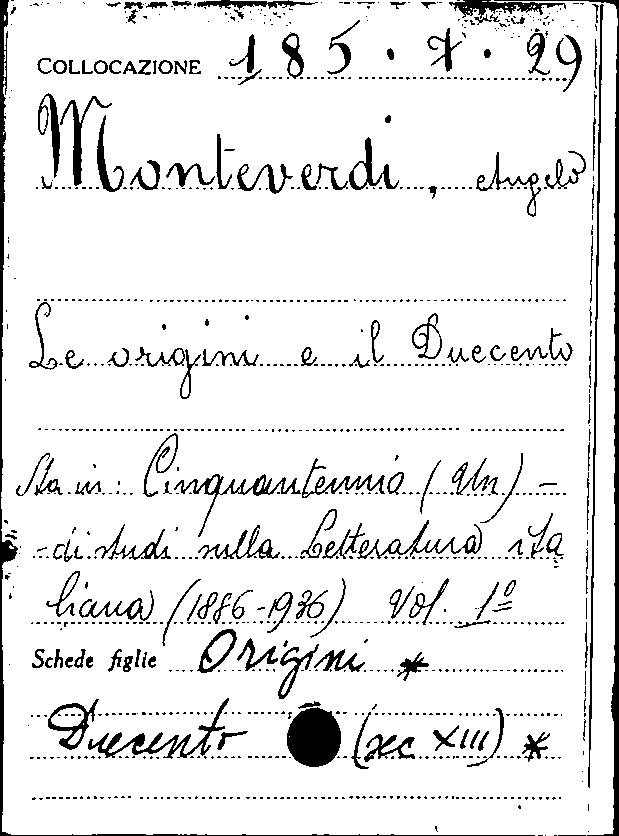 COLLOCAZIONE 185 . 7 . 29
Monteverdi, Angelo
Le origini e il Duecento
Sta in: Cinquantennio (Un) -
- di studi sulla Letteratura ita
liana (1886-1936) Vol. 1º
Schede figlie Origini *
Duecento (sec XIII) *